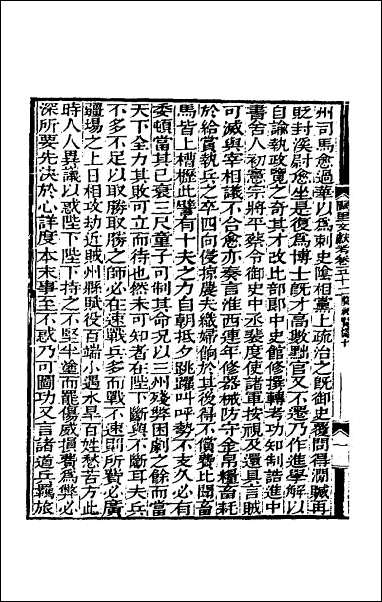 州司馬愈過華以爲刺史陰相黨上疏治之旣御史覆問得澗贓再
貶封溪尉愈坐是復爲博士旣才高數黜官又不遷乃作進學解以
自諭執政覽之奇其才改比部郎中史館修撰轉考功知制誥進中
書舍人初憲宗將平蔡令御史中丞裴度使諸軍按視及還具言賊
可滅與宰相議不合愈亦奏言淮西連年修器械防守金帛糧畜耗
於給賞執兵之卒四向侵掠農夫織婦餉於其後得不償費比聞畜
馬皆上槽櫪此譬有十夫之力自朝抵夕跳躍叫呼勢不支久必有
委頓當其已衰三尺童子可制其命况以三州殘弊困劇之餘而當
天下全力其敗可立而待也然未可知者在陛下斷與不斷耳夫兵
不多不足以取勝取勝之師必在速戰兵多而戰不速則所費必廣
疆場之上日相攻劫近賊州縣賦役百端小遇水旱百姓愁苦方此
時人人異議以惑陛下陛下持之不堅半塗而罷傷威損費爲弊必
深所要先決於心詳度本末事至不惑乃可圖功又言諸道兵羈旅